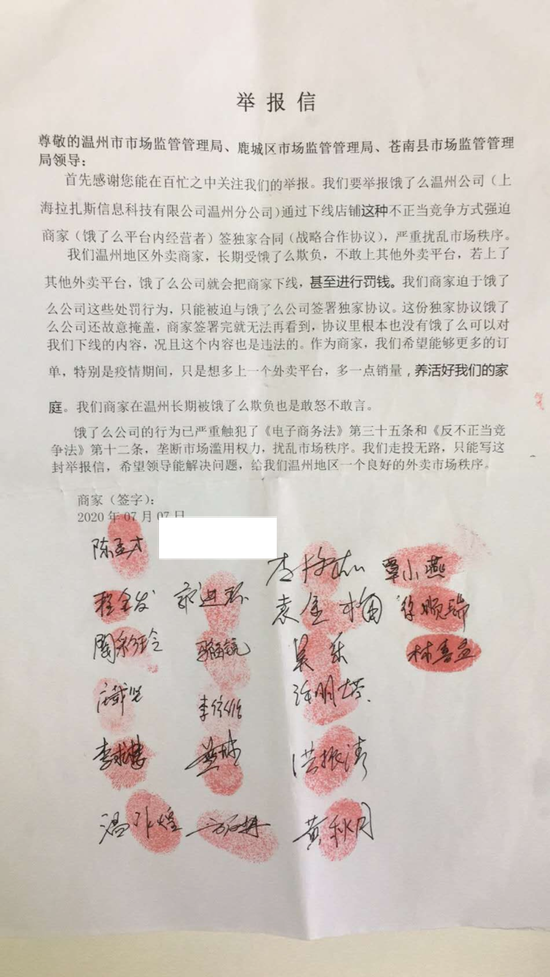 举报信
尊敬的温州市市场监管管理局、鹿城区市场监管管理局、苍南县市场监管管理
局领导：
首先感谢您能在百忙之中关注我们的举报。我们要举报饿了么温州公司（上
海拉扎斯信息科技有限公司温州分公司）通过下线店铺这种不正当竞争方式强迫
商家（饿了么平台内经营者）签独家合同（战略合作协议），严重扰乱市场秩序。
我们温州地区外卖商家，长期受饿了么欺负，不敢上其他外卖平台，若上了
其他外卖平台，饿了么公司就会把商家下线，甚至进行罚钱。我们商家迫于饿了
么公司这些处罚行为，只能被迫与饿了么公司签署独家协议。这份独家协议饿了
么公司还故意掩盖，商家签署完就无法再看到，协议里根本也没有饿了么可以对
我们下线的内容，况且这个内容也是违法的。作为商家，我们希望能够更多的订
单，特别是疫情期间，只是想多上一个外卖平台，多一点销量，养活好我们的家
庭。我们商家在温州长期被饿了么欺负也是敢怒不敢言。
饿了么公司的行为已严重触犯了《电子商务法》第三十五条和《反不正当竞
争法》第十二条，垄断市场滥用权力，扰乱市场秩序。我们走投无路，只能写这
封举报信，希望领导能解决问题，给我们温州地区一个良好的外卖市场秩序。
商家（签字）：
2020年07月07日
陈孟才 覃小燕
袁金梅 徐顺端
吴乐 林香孟
徐明塔
洪振涛
温作煌 黄秋月